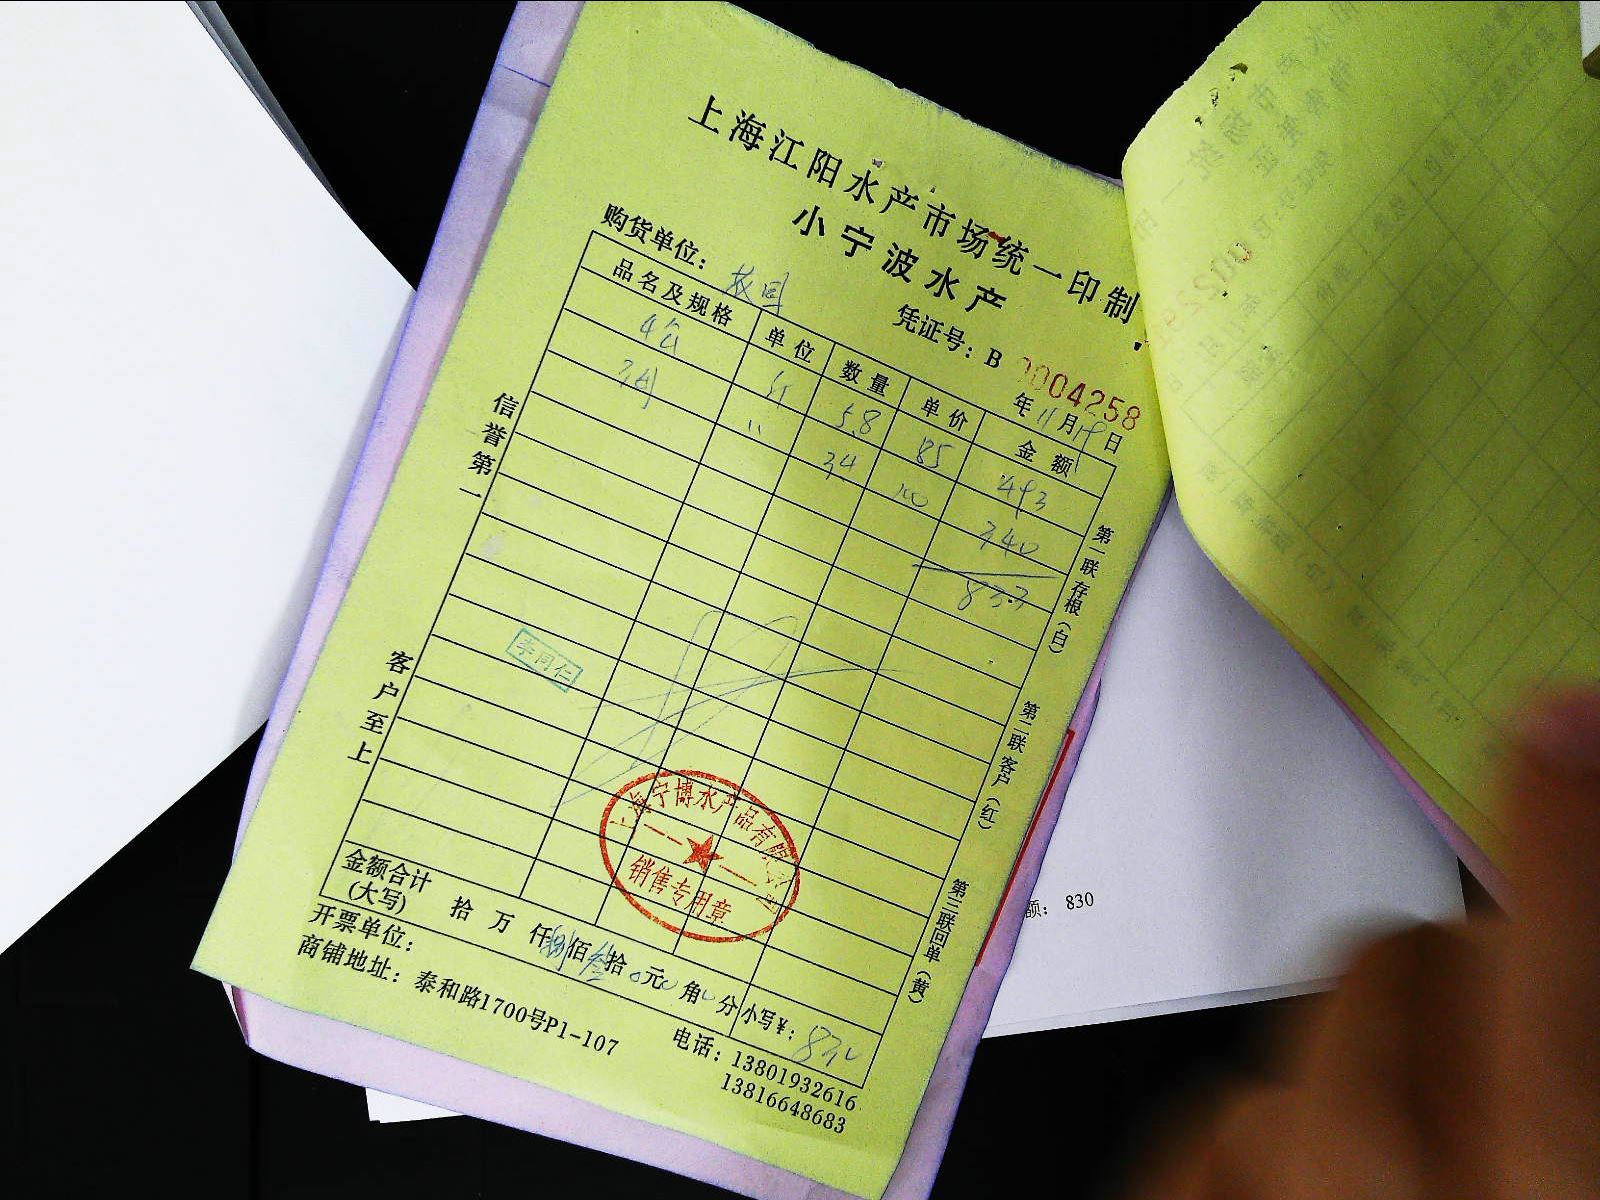 上海江阳水产市场统一印制
小宁波水产
购货单位：
凭证号：B 0004258
年 11 月 19 日
品名及规格 单位 数量 单价 金额
4公 斤 5.8 85 493
" 3.4 100 340
833
信誉第一
客户至上
第一联 存根（白）
第二联 客户（红）
第三联 回单（黄）
李同仁
上海宁博水产品有限公司
销售专用章
金额合计
（大写） 拾 万 仟 捌 佰 叁 拾 0 元 0 角 0 分 小写¥： 830
开票单位：
商铺地址：泰和路1700号P1-107
电话：13801932616
13816648683
额： 830